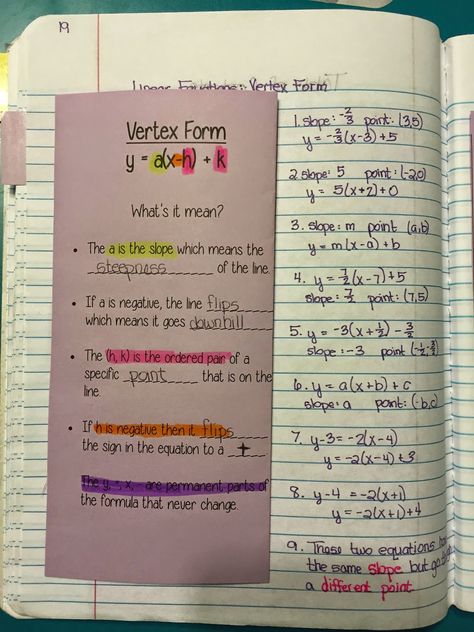 19
Linear Equations: Vertex Form
Vertex Form
y = a(x-h) + k
What's it mean?
• The a is the slope which means the
steepness of the line.
• If a is negative, the line flips
which means it goes downhill.
• The (h, k) is the ordered pair of a
specific point that is on the
line.
• If h is negative then it flips
the sign in the equation to a +
The y, =, x, - are permanent parts of
the formula that never change.
1. slope: -2/3 point: (3,5)
y = -2/3(x-3)+5
2. slope: 5 point: (-2,0)
y = 5(x+2)+0
3. slope: m point (a,b)
y = m(x-a)+b
4. y = 7/2(x-7)+5
slope: 7/2 point: (7,5)
5. y = -3(x+1/2) - 3/2
slope: -3 point
6. y = a(x+b)+c
slope: a point: (-b,c)
7. y-3 = -2(x-4)
y = -2(x-4)+3
8. y-4 = -2(x+1)
y = -2(x+1)+4
9. These two equations
the same slope but
a different point